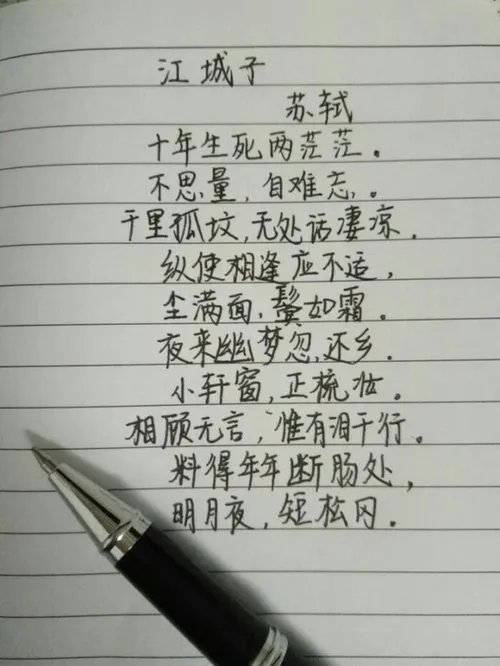 江城子
苏轼
十年生死两茫茫。
不思量，自难志。
千里狐坟，无处话凄凉。
纵使相逢应不适，
尘满面，鬓如霜。
夜来幽梦忽还乡。
小轩窗，正梳妆。
相顾无言，惟有泪千行。
料得年年断肠处，
明月夜，短松冈。